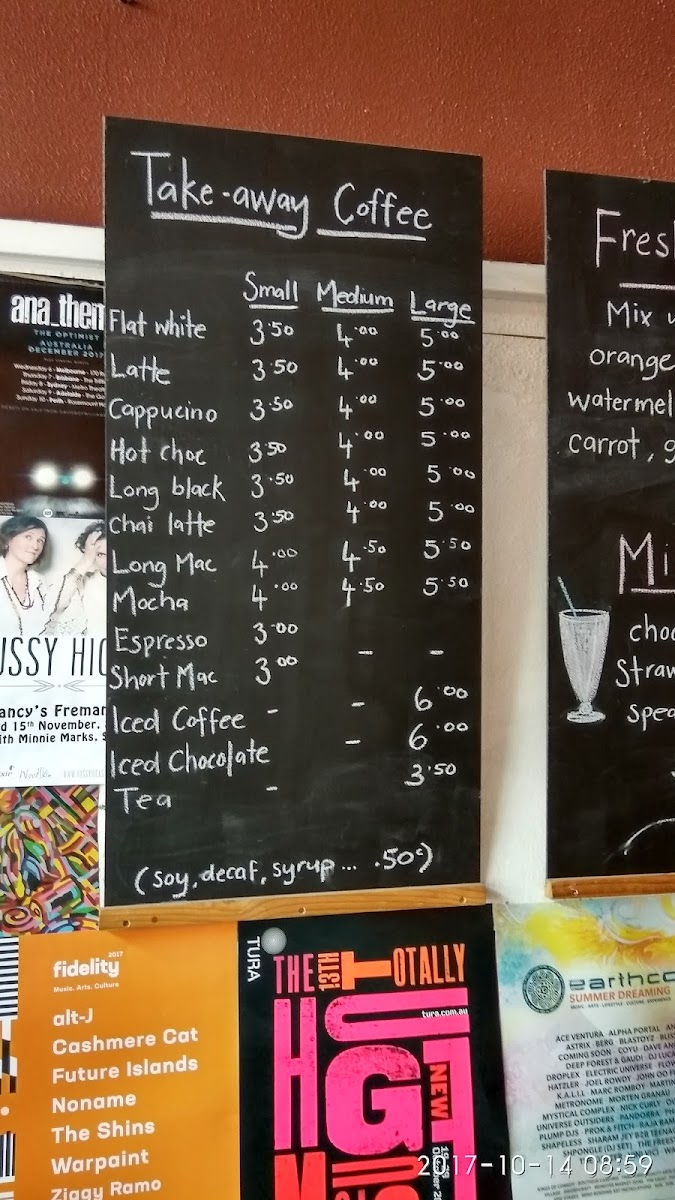 Take-away Coffee
Small Medium Large
Flat white 3.50 4.00 5.00
Latte 3.50 4.00 5.00
Cappucino 3.50 4.00 5.00
Hot choc 3.50 4.00 5.00
Long black 3.50 4.00 5.00
chai latte 3.50 4.00 5.00
Long Mac 4.00 4.50 5.50
Mocha 4.00 4.50 5.50
Espresso 3.00 - -
Short Mac 3.00
Iced Coffee - - 6.00
Iced Chocolate - 6.00
Tea - 3.50
(soy, decaf, syrup... .50c)
Mix
orange
carrot,
ana_them
THE OPTIMIST
AUSTRALIA
DECEMBER 2017
USSY HIG
ancy's Freman
d 15th November.
ith Minnie Marks.
fidelity 2017
Music. Arts. Culture
alt-J
Cashmere Cat
Future Islands
Noname
The Shins
Warpaint
Ziggy Ramo
TURA
THE 13TH TOTALLY
tura.com.au
HUGE
NEW
earthco
SUMMER DREAMING
ACE VENTURA ALPHA PORTAL
ASTRIX BERG BLASTOYZ
COMING SOON COYU DAVE
DEEP FOREST & GAUDI DJ
DROPLEX ELECTRIC UNIVERSE
HATZLER JOEL ROWDY JOHN
K.A.L.I.L MARC ROMBOY
METRONOME MORTEN GRANAU
MYSTICAL COMPLEX NICK CURLY
UNIVERSE OUTSIDERS PANDORRA
PLUMP DJS PROK & FITCH RAJA
SHAPELESS SHARAM JEY
SHPONGLE (DJ SET)
2017-10-14 08:59